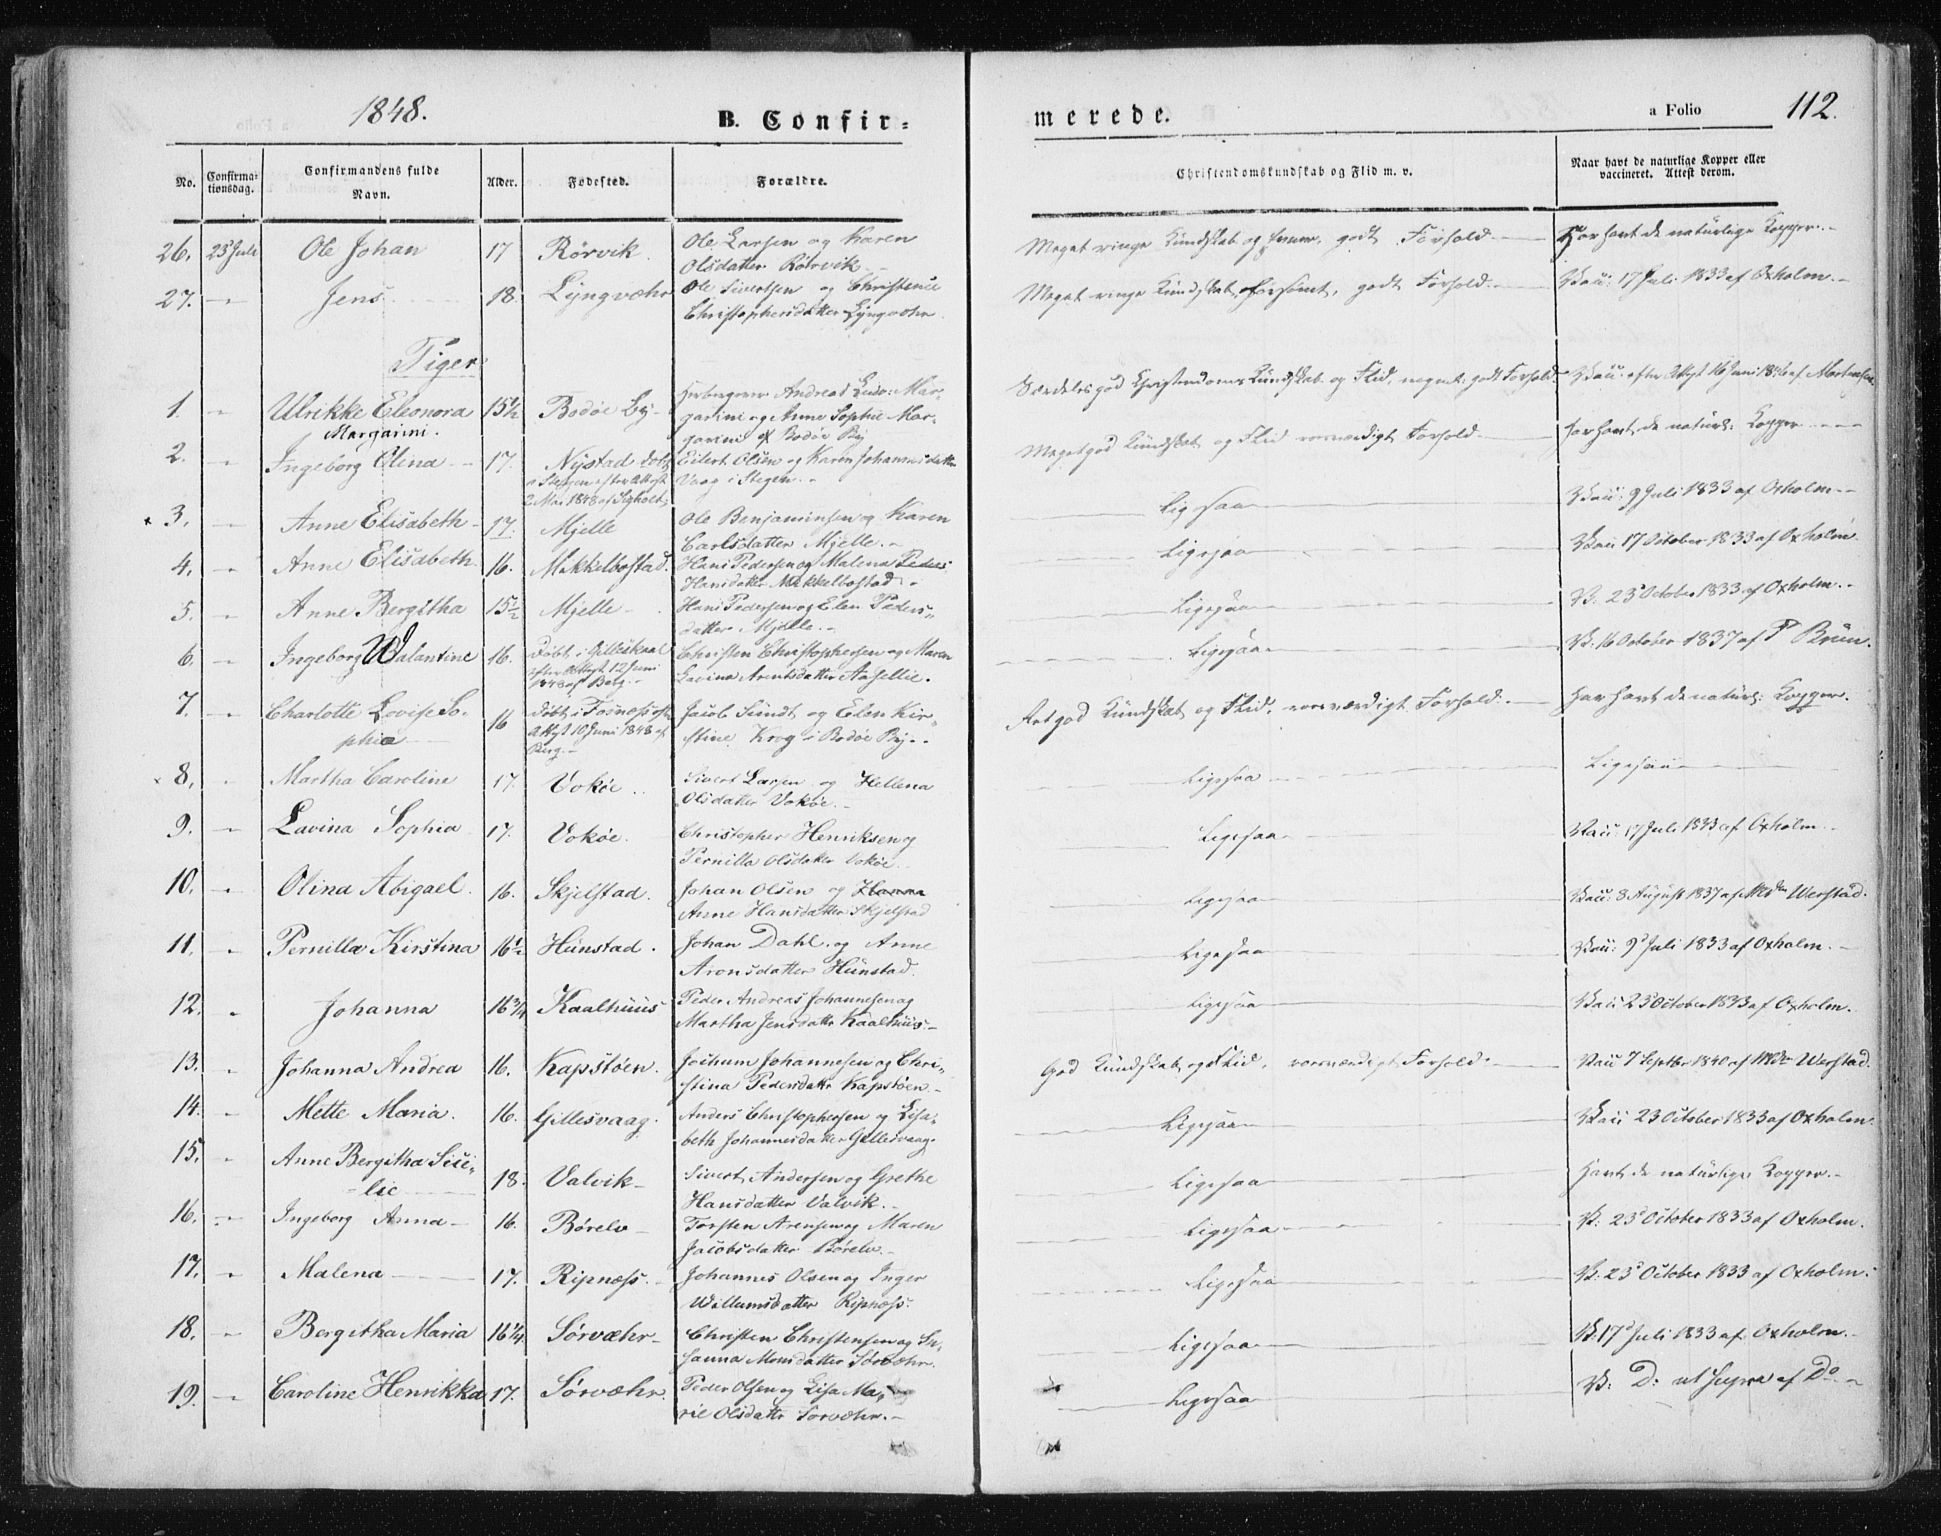 1848.
B. Confir-
merede.
a Folio 112.
No. Confirma-
tionsdag. Confirmandens fulde
Navn. Alder. Fødested. Forældre. Christendomskundskab og Flid m. v. Naar havt de naturlige Kopper eller
vaccineret. Attest derom.
26. 23 Juli Ole Johan 17 Rörvik. Ole Larsen og Karen
Olsdatter Rörvik Meget ringe Kundskab og godt Forhold. Har havt de naturlige Kopper.
27. Jens 18. Lyngvæhr Ole Sivertsen og Christense
Christophersdatter Lyngvæhr Meget ringe Kundskab, godt Forhold. Vacc: 17 Juli 1833 af Oxholm.
Piger
1. Ulrikke Eleonora
Margarini. 15½ Bodöe By Andreas Mar-
garini og Anne Sophie Mar-
garini af Bodöe By Særdeles god Christendoms Kundskab og Flid, meget godt Forhold. Vacc: efter Attest 16 Juni af Mortensen
2. Ingeborg Elina 17. Nystad döbt
i Steegen efter Attest
2 Mai 1848 af Eilert Olsen og Karen Johannesdatter
Vaag i Stegen. Meget god Kundskab og Flid, roesværdigt Forhold. Har havt de naturl: Kopper
3. Anne Elisabeth 17. Mjelle Ole Benjaminsen og Karen
Carlsdatter Mjelle. Ligesaa Vacc: 9 Juli 1833 af Oxholm
4. Anne Elisabeth 16. Mikkelbostad. Hans Pedersen og Malena Peders
Hansdatter Mikkelbostad. Ligesaa Vacc 17 October 1833 af Oxholm.
5. Anne Bergitha 15½ Mjelle Hans Pedersen og Elen Peders-
datter Mjelle. Ligesaa V. 23 October 1833 af Oxholm.
6. Ingeborg Walantine 16. Döbt i Gilleskaal
efter Attest 12 Juni
1848 af Berg. Christen Christophersen og Maren
Lavina Arentsdatter Aasellie. Ligesaa V. 16 October 1837 af P Bruun.
7. Charlotte Lovise So-
phia 16 Döbt i
Attest 10 Juni 1848 af
Berg. Jacob Sundt og Elen Kir-
stine Krog i Bodöe By. god Kundskab og Flid, roesværdigt Forhold. Har havt de naturl: Kopper.
8. Martha Caroline 17. Vokøe Sivert Larsen og Hellena
Olsdatter Vokøe. Ligesaa Ligesaa
9. Lavina Sophia 17. Vokøe. Christopher Henriksen og
Pernilla Olsdatter Vokøe. Ligesaa Vacc: 17 Juli 1833 af Oxholm.
10. Olina Abigael. 16. Skjelstad. Johan Olsen og Hanna
Anne Hansdatter Skjelstad Ligesaa Vacc: 8 August 1837 af Werstad.
11. Pernilla Kirstina 16½ Hunstad. Johan Dahl. og Anne
Aronsdatter Hunstad. Ligesaa Vacc: 9 Juli 1833 af Oxholm.
12. Johanna 16¾ Kaalhuus Peder Andreas Johannesen og
Martha Jensdatter Kaalhuus. Ligesaa Vacc 23 October 1833 af Oxholm.
13. Johanna Andrea 16. Kapstöen. Jochum Johannesen og Chri-
stina Pedersdatter Kapstöen. God Kundskab og Flid, roesværdigt Forhold. Vacc 7 Septbr 1840 af Werstad.
14. Mette Maria. 16. Gillesvaag. Anders Christophersen og Lisa-
beth Johannesdatter Gillesvaag. Ligesaa Vacc 23 October 1833 af Oxholm.
15. Anne Bergitha Sici-
lie 18. Valvik Sivert Andersen og Grethe
Hansdatter Valvik. Ligesaa Havt de naturlige Kopper.
16. Ingeborg Anna 16. Børelv Torsten Arensen og Maren
Jacobsdatter Børelv. Ligesaa V. 23 October 1833 af Oxholm.
17. Malena 17. Ripnæss. Johannes Olsen og Inger
Willumsdatter Ripnæss. Ligesaa V. 23 October 1833 af Oxholm.
18. Bergitha Maria 16¼ Sörvæhr Christen Christensen og Su-
sanna Monsdatter Sörvæhr. Ligesaa V. 17 Juli 1833 af Oxholm.
19. Caroline Henrikka 17. Sörvæhr. Peder Olsen og Lisa Ma-
rie Olsdatter Sörvæhr. Ligesaa V. D: ut supra af Do